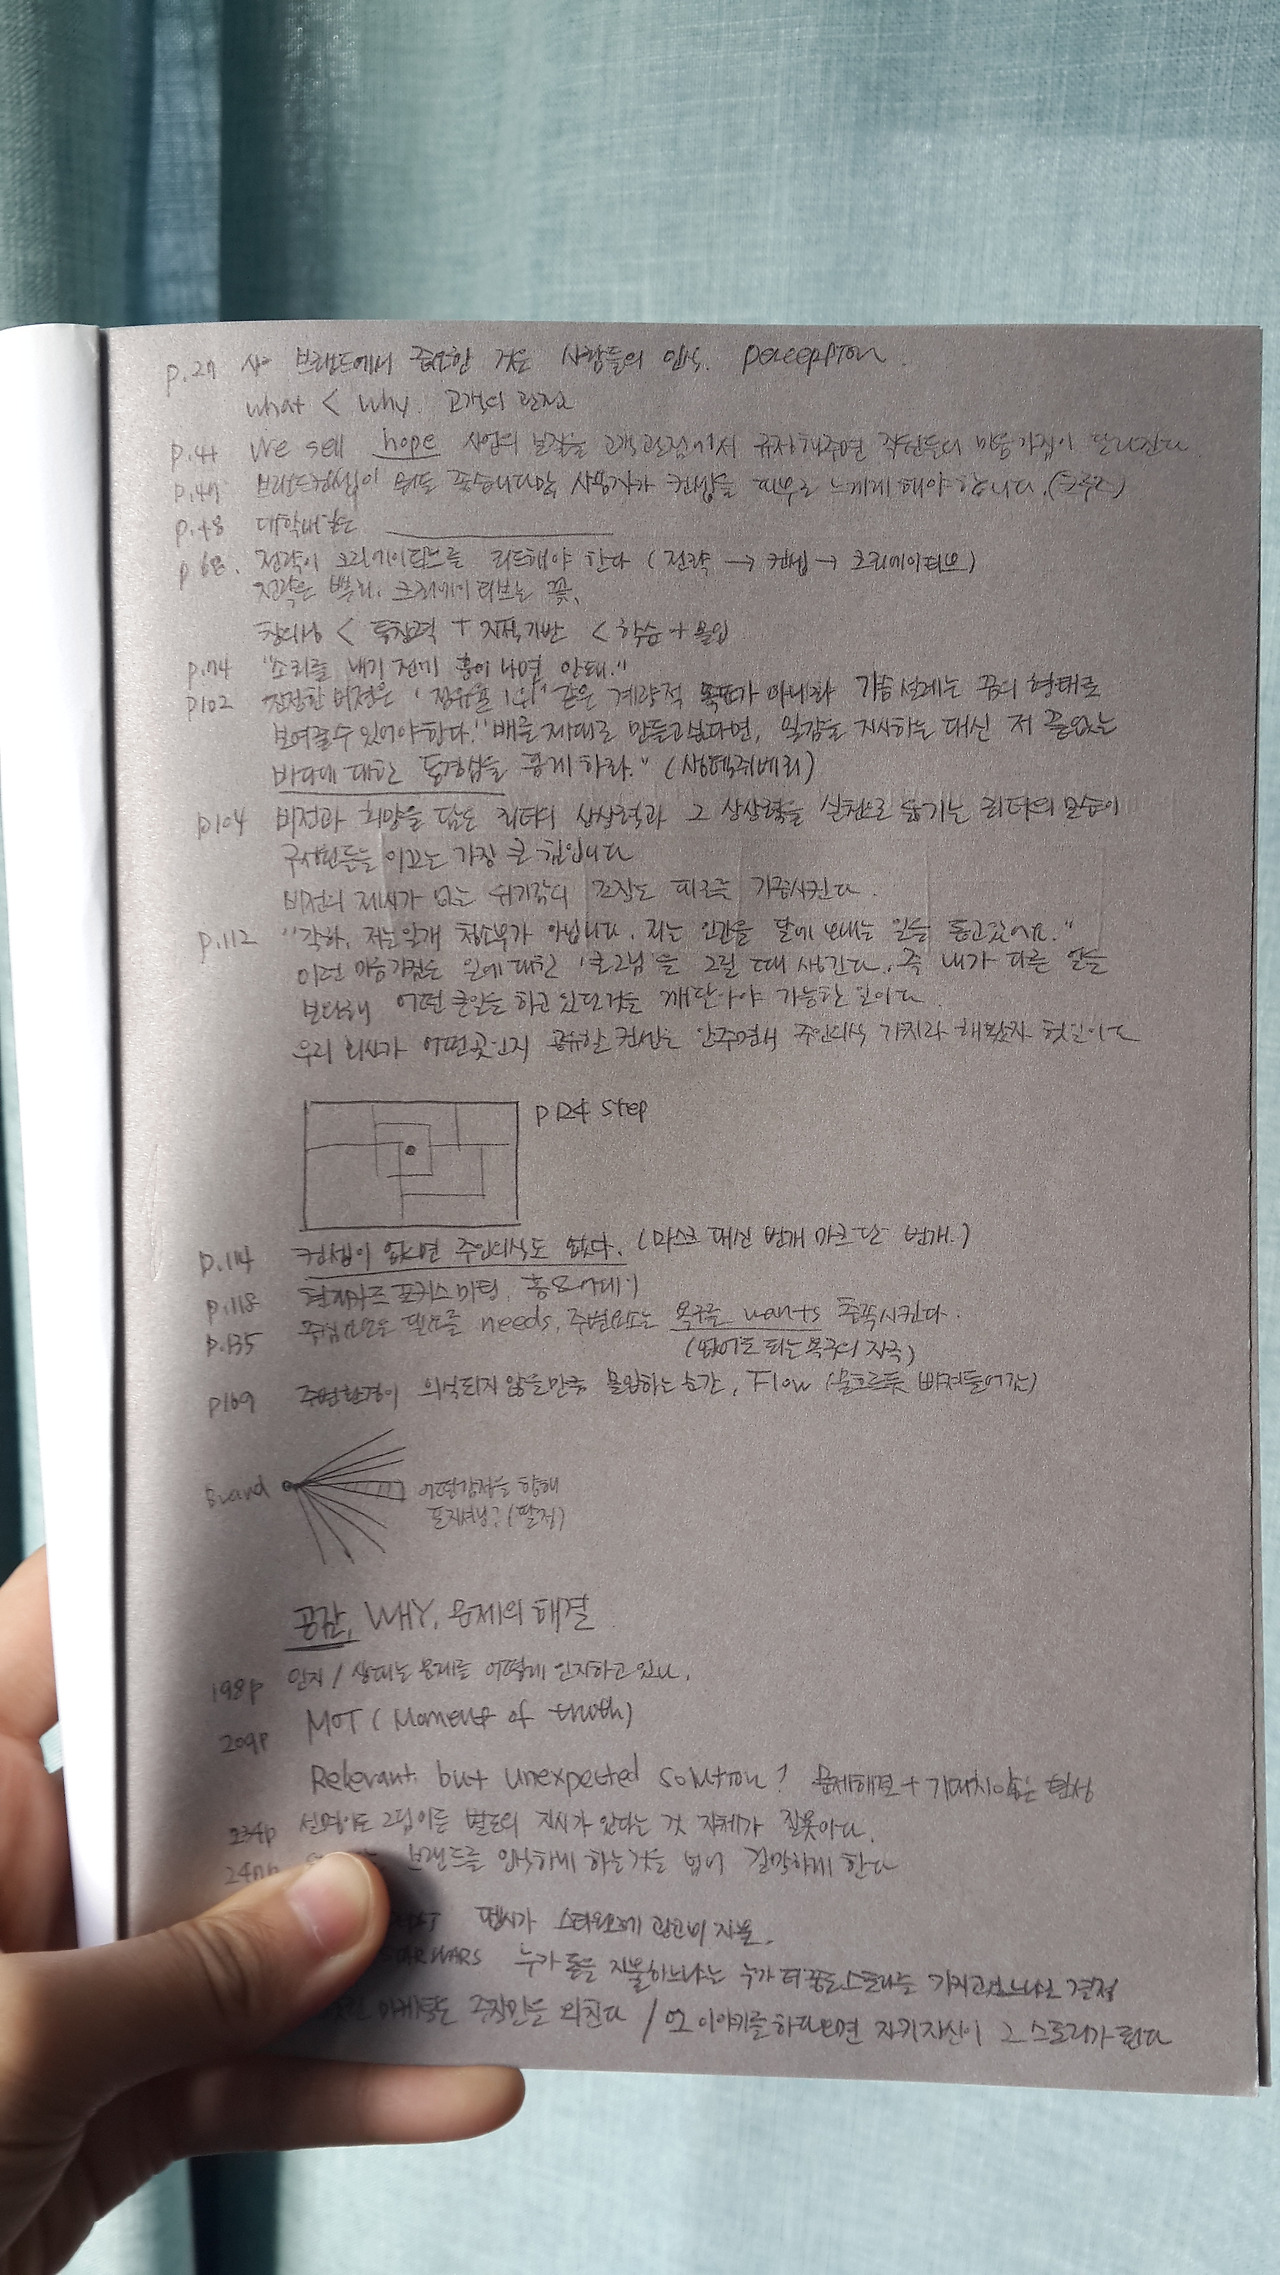 p.27 브랜드에서 중요한 것은 사람들의 인식. perception
what < why. 고객의 관점
p.41 We sell hope 사업의 본질을 고객관점에서 공유해주면 직원들의 마음가짐이 달라진다
p.47 브랜드컨셉이 뭐든 좋습니다만, 사용자가 컨셉을 피부로 느끼게 해야 합니다.
p.48 대학내일은
p 68. 전략이 크리에이티브를 리드해야 한다 (전략 → 컨셉 → 크리에이티브)
전략은 뿌리, 크리에이티브는 꽃,
창의성 < 독창력 + 지적기반 < 학습 + 몰입
p.74 "소리를 내기 전에 흥이 나면 안돼."
p102 진정한 비전은 '점유율 1위' 같은 계량적 목표가 아니라 가슴 설레는 꿈의 형태로
보여줄 수 있어야 한다. "배를 제대로 만들고 싶다면, 일감을 지시하는 대신 저 끝없는
바다에 대한 동경심을 품게 하라." (생텍쥐베리)
p104 비전과 희망을 담은 리더의 상상력과 그 상상력을 실천으로 옮기는 리더의 모습이
구성원들을 이끄는 가장 큰 힘입니다
비전의 제시가 없는 위기감의 조작도 피로를 가중시킨다.
p.112 "각하, 저는 일개 청소부가 아닙니다. 저는 인간을 달에 보내는 일을 돕고 있어요."
이런 마음가짐은 일에 대한 '큰그림'을 그릴 때 생긴다. 즉 내가 다른 일을
보다 어떤 큰일을 하고 있다는 것을 깨달아야 가능한 일이다.
우리 회사가 어떤 곳인지 공유할 컨셉은 안주면서 주인의식 가지라 해봤자 헛일이다
p124 step
p.114 컨셉이 없으면 주인의식도 없다. (마스크 대신 번개 마크 단 번개.)
p.118 현대카드 포커스미팅,
p.135 중심요소는 필요를 needs, 주변요소는 욕구를 wants 충족시킨다.
(없어도 되는 욕구의 자극)
p169 주변환경이 의식되지 않을만큼 몰입하는 순간, Flow (물흐르듯 빠져들어감)
Brand 어떤감정을 향해
포지셔닝? (딸정)
공감, WHY, 문제의 해결
198p 인지 / 상대는 문제를 어떻게 인지하고 있나.
209p MOT (Moment of truth)
Relevant but unexpected solution? 문제해결 + 기대치않은 현상
234p 설명이든 그림이든 별도의 지시가 있다는 것 자체가 잘못이다.
브랜드를 인식하게 하는 것을 넘어 경험하게 한다
펩시가 스타워즈에 광고비 지불.
STARWARS 누가 돈을 지불하느냐는 누가 더 좋은 스토리를 가지고 있느냐로 결정
마케팅은 주장만을 외친다 / 이야기를 하다보면 자기자신이 그 스토리가 된다